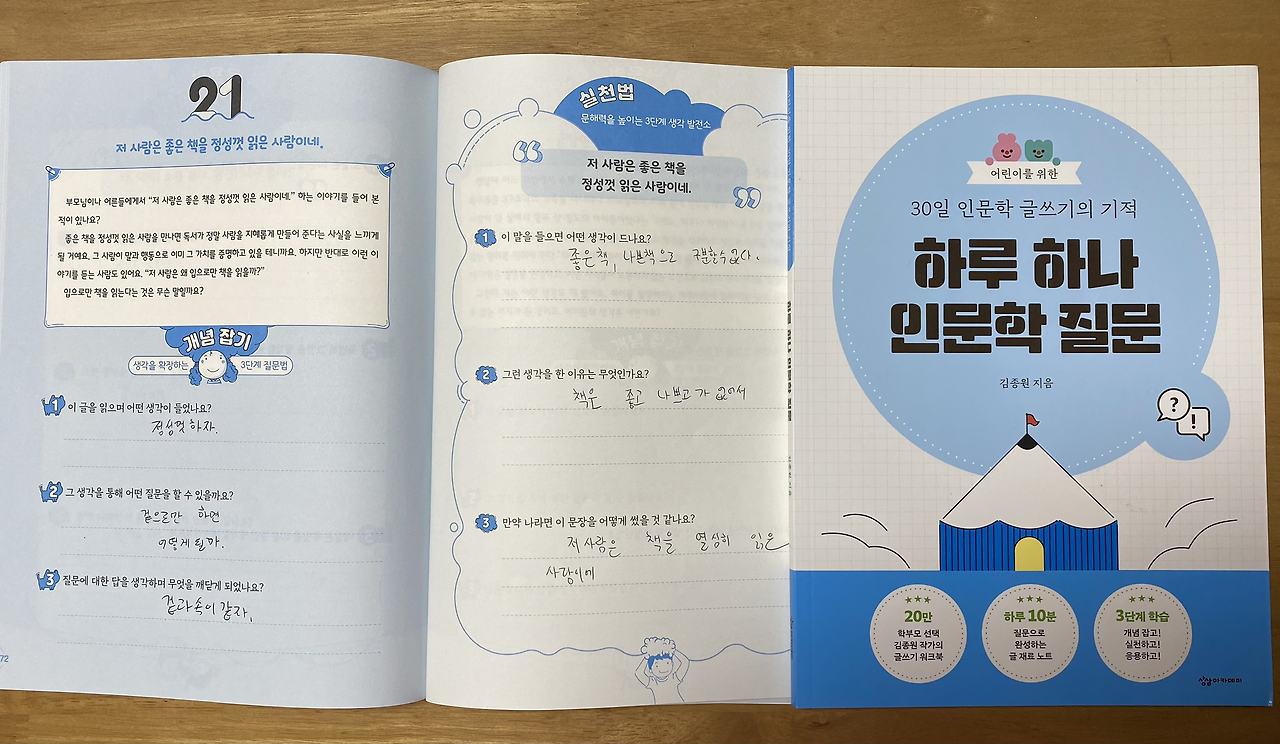 21
저 사람은 좋은 책을 정성껏 읽은 사람이네.
부모님이나 어른들에게서 “저 사람은 좋은 책을 정성껏 읽은 사람이네.” 하는 이야기를 들어 본
적이 있나요?
좋은 책을 정성껏 읽은 사람을 만나면 독서가 정말 사람을 지혜롭게 만들어 준다는 사실을 느끼게
될 거예요. 그 사람이 말과 행동으로 이미 그 가치를 증명하고 있을 테니까요. 하지만 반대로 이런 이
야기를 듣는 사람도 있어요. “저 사람은 왜 입으로만 책을 읽을까?”
입으로만 책을 읽는다는 것은 무슨 말일까요?
개념 잡기
생각을 확장하는 3단계 질문법
1 이 글을 읽으며 어떤 생각이 들었나요?
정성껏 하자.
2 그 생각을 통해 어떤 질문을 할 수 있을까요?
겉으로만 하면
어떻게 될까.
3 질문에 대한 답을 생각하며 무엇을 깨닫게 되었나요?
겉과 속이 같자.
72
실천법
문해력을 높이는 3단계 생각 발전소
“
저 사람은 좋은 책을
정성껏 읽은 사람이네.
”
1 이 말을 들으면 어떤 생각이 드나요?
좋은 책, 나쁜책으로 구분할수 없다.
2 그런 생각을 한 이유는 무엇인가요?
책은 좋고 나쁘고가 없어서
3 만약 나라면 이 문장을 어떻게 썼을 것 같나요?
저 사람은 책을 열심히 읽은
사람이네
하루 하나 인문학 질문
어린이를 위한
30일 인문학 글쓰기의 기적
하루 하나
인문학 질문
김종원 지음
?
!
20만
학부모 선택
김종원 작가의
글쓰기 워크북
하루 10분
질문으로
완성하는
글 재료 노트
3단계 학습
개념 잡고!
실천하고!
응용하고!
상상아카데미